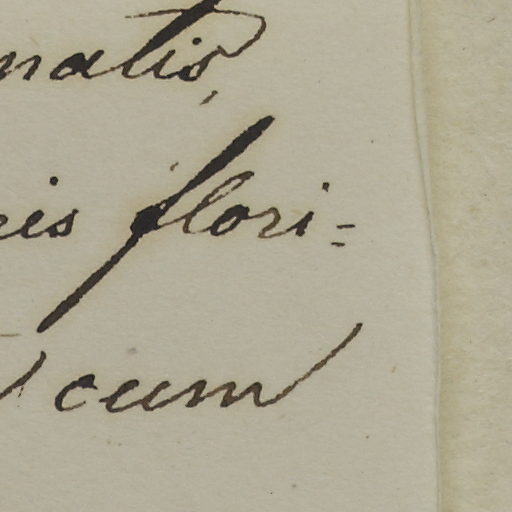 natis,
ris flori=
cum